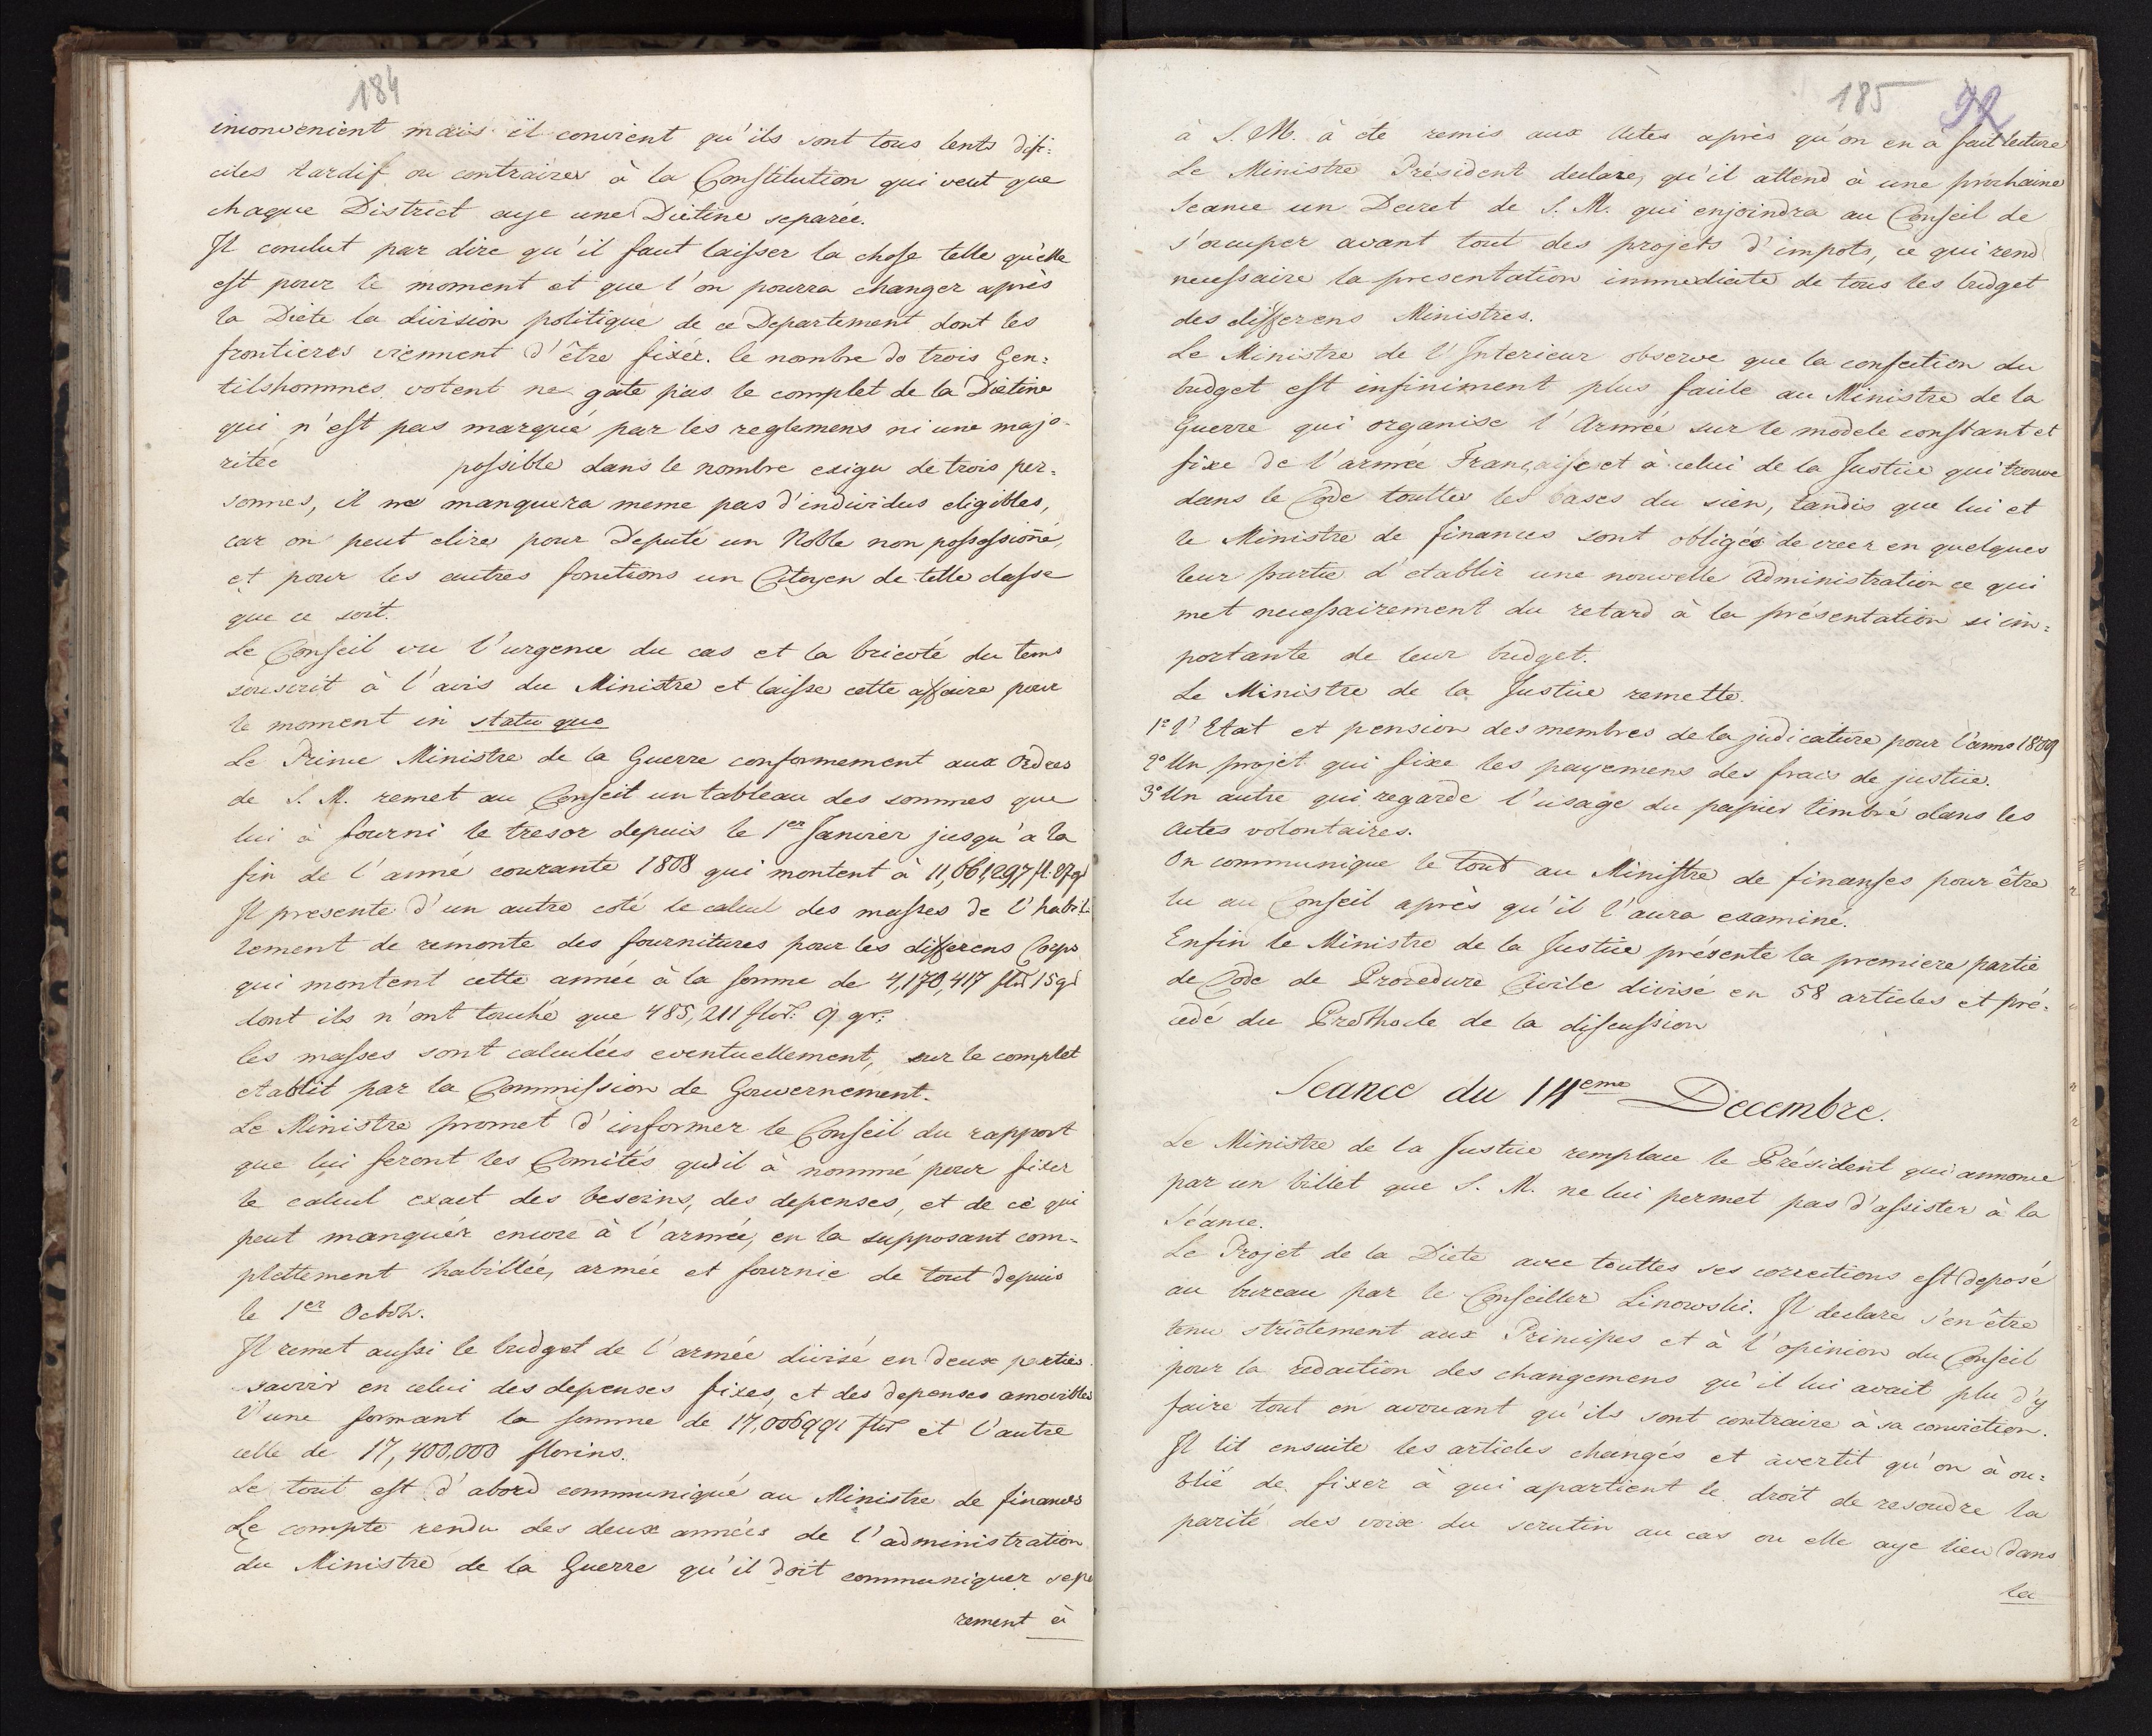 184
inconvenient mais il convient qu'ils sont tous lents difi=
ciles tardif ou contraires à la Constitution qui veut que
chaque District aye une Dietine separée.
Il conclut par dire qu'il faut laisser la chose telle qu'elle
est pour le moment et que l'on pourra changer après
la Diete la division politique de ce Departement dont les
frontieres viennent d'être fixér. le nombre do trois Gen=
tilshommes votent ne gate pas le complet de la Diètine
qui n'est pas marqué par les reglemens ni une majo-
ritée possible dans le nombre exigu de trois per=
sonnes, il ne manquera meme pas d'individus eligibles,
car on peut elire pour Député un Noble non possessioñé,
et pour les autres fonctions un Citoyen de telle classe
que ce soit.
Le Conseil vu l'urgence du cas et la brieoté du tems
souscrit à l'avis du Ministre et laisse cette affaire pour
le moment in statu quo
Le Prince Ministre de la Guerre conformement aux Ordres
de S. M. remet au Conseil un tableau des sommes que
lui à fourni le tresor depuis le 1er Janvier jusqu'a la
fin de l'anné courante 1808 qui montent à 11,661,297 fl. 27 gr
Il presente d'un autre coté le calcul des masses de l'habil
lement de remonte des fournitures pour les differens Corps
qui montent cette année à la somme de 4,170,417 flor 15 gr
dont ils n'ont touché que 485,211 flor: 9 gr:
les masses sont calculées eventuellement, sur le complet
etablit par la Commission de Gouvernement.
Le Ministre promet d'informer le Conseil du rapport
que lui feront les Comités qu'il à nommé pour fixer
le calcul exact des besoins, des depenses, et de ce qui
peut manquér encore à l'armée, en la supposant com-
plettement habillée, armée et fournie de tout depuis
le 1er Octobr.
Il remet aussi le budget de l'armée divisé en deux parties
savoir en celui des depenses fixes, et des depenses amovibles
l'une formant la somme de 17,006991 flor et l'autre
celle de 17,400,000 florins.
Le tout est d'abord communiqué au Ministre de finances
Le compte rendu des deux années de l'administration
du Ministre de la Guerre qu'il doit communiquer sepa
rement à
185 92
à S. M. à été remis aux Actes après qu'on en à fait lecture
Le Ministre Président declare, qu'il attend à une prochaine
Seance un Decret de S. M. qui enjoindra au Conseil de
s'occuper avant tout des projets d'impots, ce qui rend
necessaire la presentation immediate de tous les budget
des differens Ministres.
Le Ministre de l'Interieur observe que la confection du
budget est infiniment plus facile au Ministre de la
Guerre qui organise l'Armée sur le modele constant et
fixe de l'armée Française et à celui de la Justice qui trouve
dans le Code touttes les bases du sien, tandis que lui et
le Ministre de finances sont obligés de creer en quelques
leur partie d'etablir une nouvelle Administration ce qui
met necessairement du retard à la présentation si im=
portante de leur budget.
Le Ministre de la Justice remette.
1° l'Etat et pension des membres de la judicature pour l'anno 1809
2° Un projet qui fixe les payemens des frais de justice.
3° Un autre qui regarde l'usage du papier timbré dans les
actes volontaires.
On communique le tout au Ministre de finanses pour être
lu au Conseil après qu'il l'aura examiné.
Enfin le Ministre de la Justice présente la premiere partie
de Code de Procedure Civile divisé en 58 articles et pré=
cedé du Prothocle de la discussion
Seance du 14eme Decembre.
Le Ministre de la Justice remplace le Président qui annonce
par un billet que S. M. ne lui permet pas d'assister à la
Séance.
Le Projet de la Diete avec touttes ses corrections est deposé
au bureau par le Conseiller Linowski. Il declare s'en être
tenu strictement aux Principes et à l'opinion du Conseil
pour la redaction des changemens qu'il lui avait plu d'y
faire tout en avouant qu'ils sont contraire à sa conviction.
Il lit ensuite les articles changés et avertit qu'on à ou=
blié de fixer à qui apartient le droit de resoudre la
parité des voix du scrutin au cas ou elle aye lieu dans
la